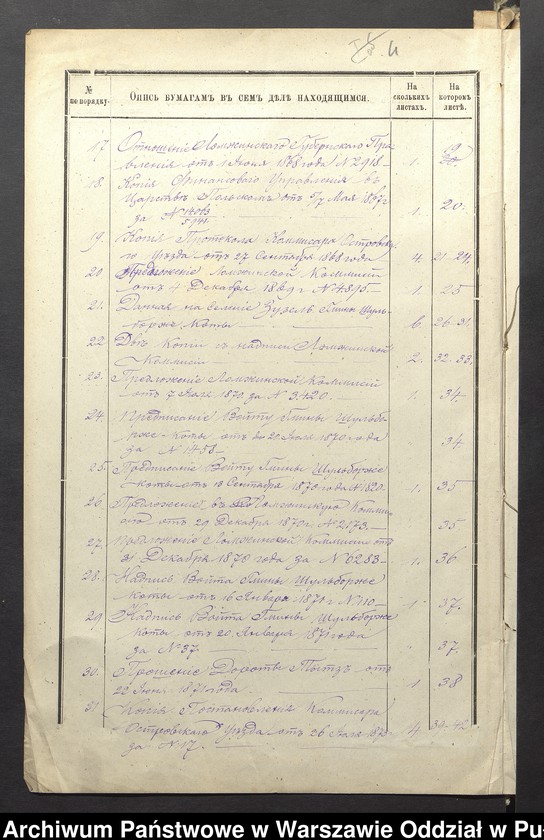 № по порядку.
Опись бумагамъ въ семъ дѣлѣ находящимся.
На сколькихъ листахъ.
На которомъ листѣ.
17. Отношеніе Ломжинскаго Губернскаго Пра-
вленія отъ 1 Іюня 1868 года N 2918 — 1. 19
18. Копія Финансоваго Управленія въ
Царствѣ Польскомъ отъ 5/7 Мая 1867 г
за N 1. 20.
19. Копія Протокола Коммисара Островска-
го Уѣзда отъ 27 Сентября 1868 года 4 21-24.
20 Предложеніе Ломжинской Коммисіи
отъ 4 Декабря 1869 г N 4895 — 1. 25
21. Данная на селеніе Зузель Гмины Шуль-
борже Коты 6. 26-31.
22 Двѣ Копіи съ надписи Ломжинской
Коммисіи 2. 32-33.
23. Предложеніе Ломжинской Коммисіи
отъ 7 1870 за N 3420. — 1. 34.
24. Предписаніе Войту Гмины Шульбо-
рже-Коты отъ 20 1870 года
за N 1458 34
25. Предписаніе Войту Гмины Шульборже
Коты отъ 18 Сентября 1870 года N 1820 1. 35
26. Предложеніе въ Ломжинскую Комми-
сію отъ 29 Декабря 1870 г. N 2173. — 35
27. Предложеніе Ломжинской Коммисіи отъ
31 Декабря 1870 года за N 6283 — 1. 36
28. Надпись Войта Гмины Шульборже
Коты отъ 16 Января 1871 г N 110 — 1. 37.
29 Надпись Войта Гмины Шульборже
Коты отъ 20 Января 1871 года
за N 37. 37.
30. Прошеніе Дороты отъ
22 Іюня 1871 года. 1 38
31 Копія Постановленія Коммисара
Островскаго Уѣзда отъ 26 187
за N 17. 4 39-42
Archiwum Państwowe w Warszawie Oddział w Pu